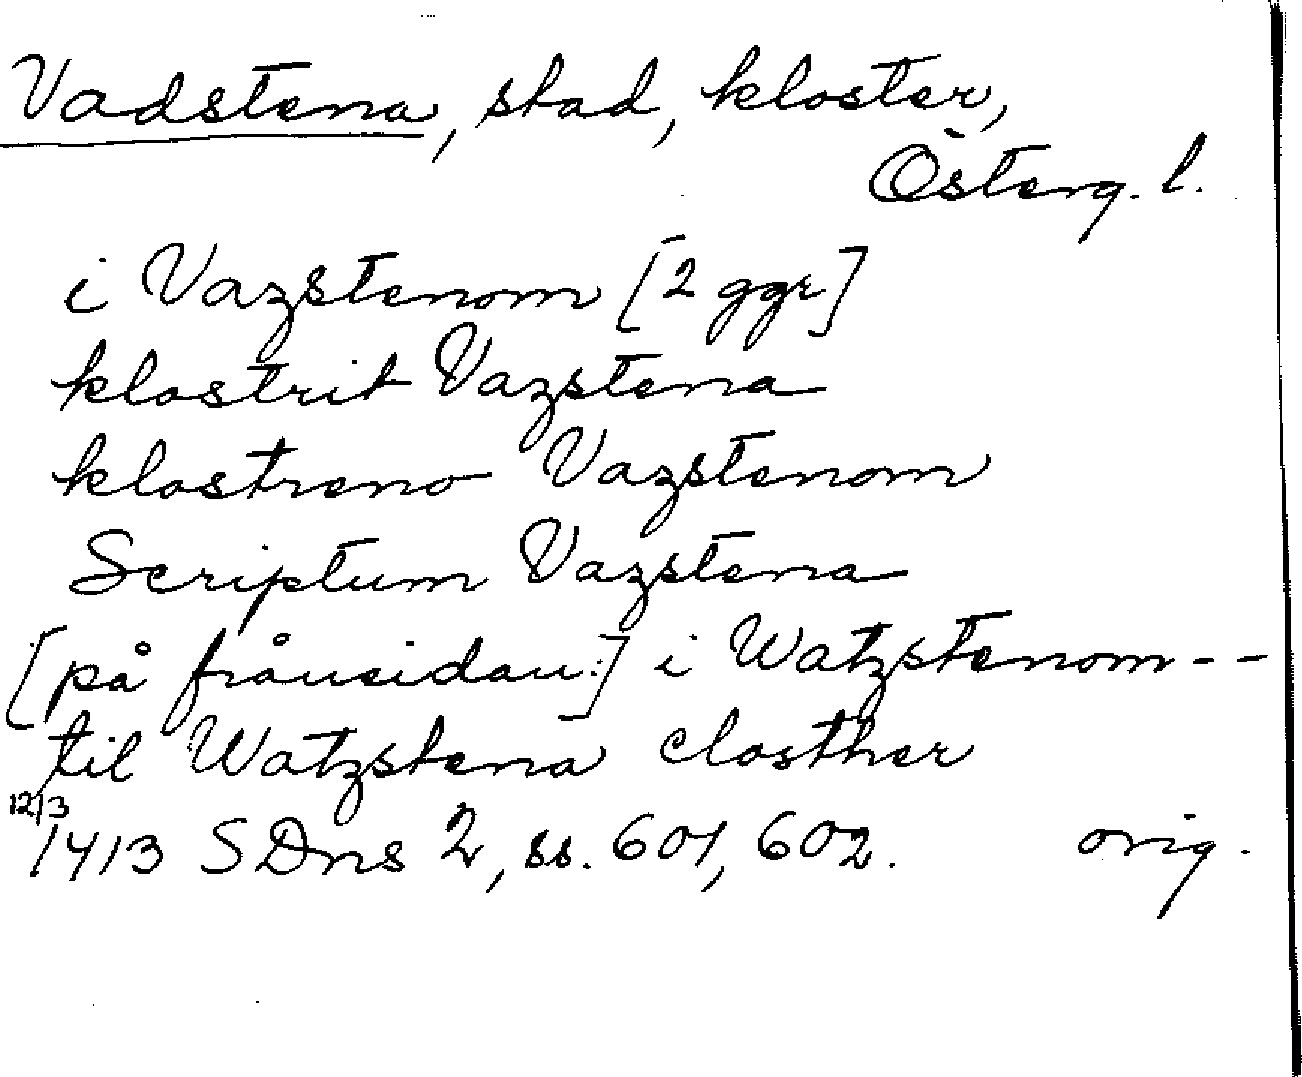 Vadstena, stad, kloster,
Österg. l.
i Vazstenom [2 ggr]
klostrit Vazstena
klostreno Vazstenom
Scriptum Vazstena
[på frånsidan:] i Watzstenom--
til Watzstena closther
12/3
1413 SDns 2, ss. 601, 602. orig.